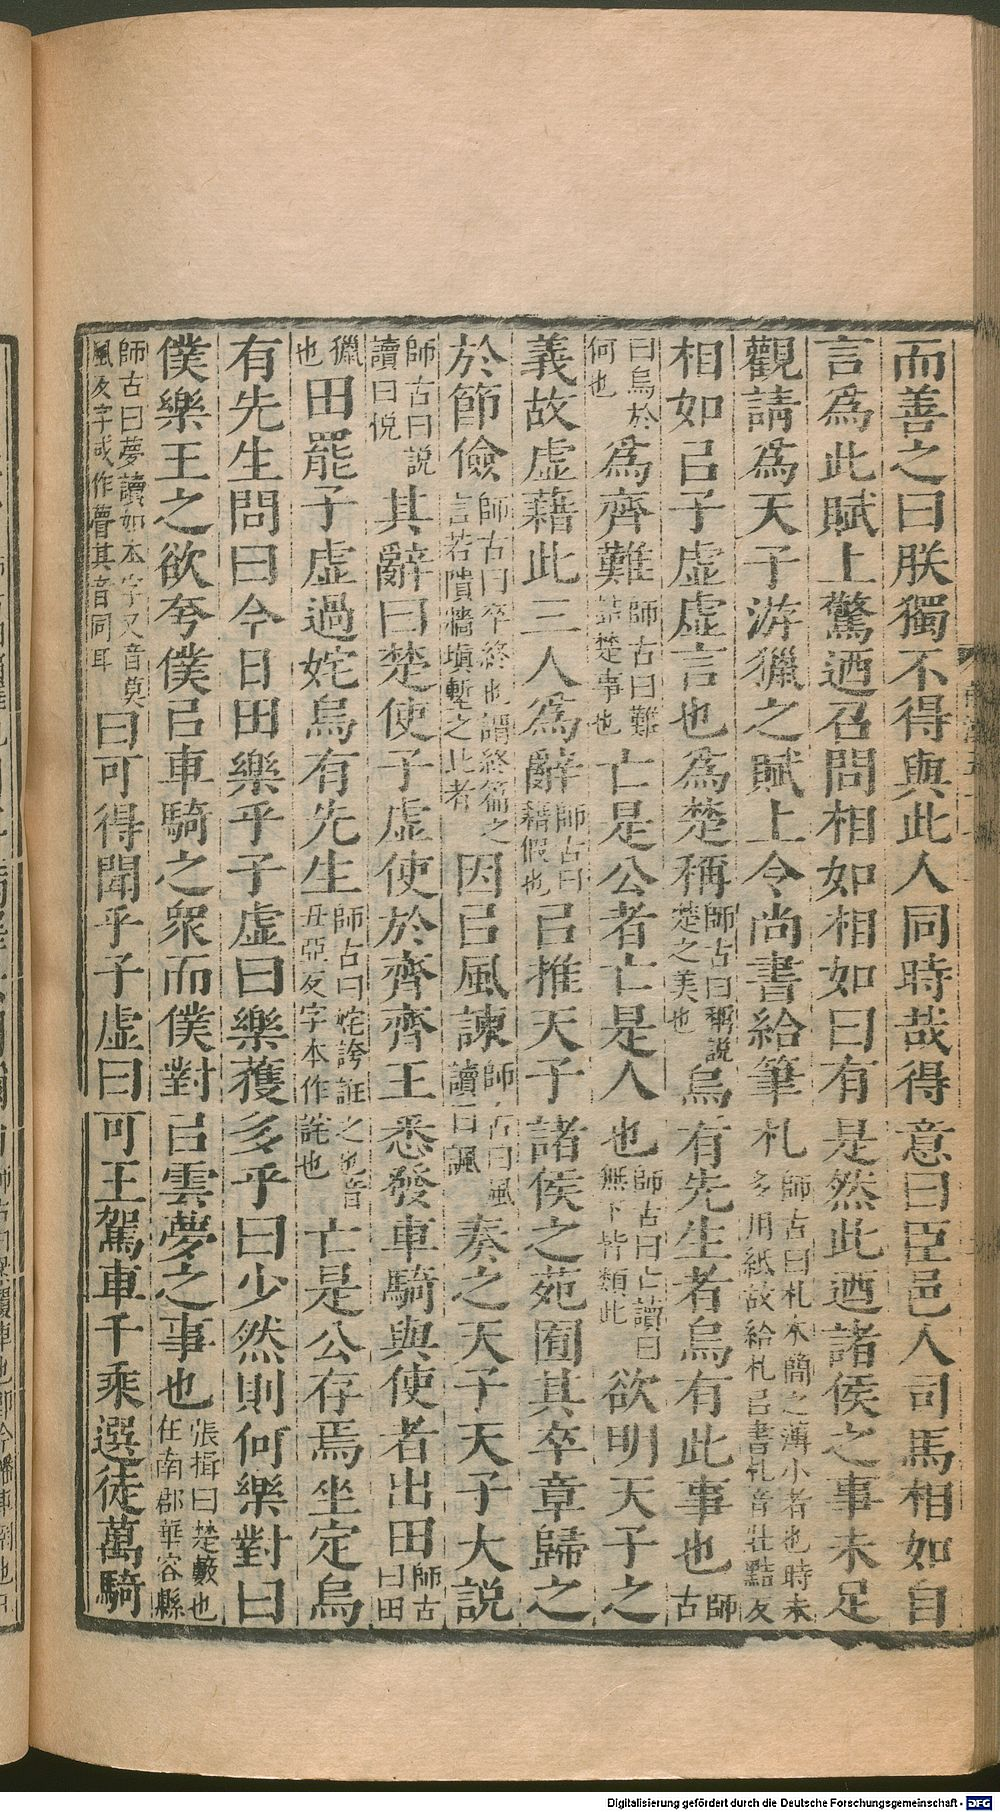 而善之曰朕獨不得與此人同時哉得意曰臣邑人司馬相如自
言爲此賦上驚迺召問相如相如曰有是然此迺諸侯之事未足
觀請爲天子游獵之賦上令尚書給筆札師古曰札木簡之薄小者也時未多用紙故給札㠯書札音壯黠反
相如㠯子虛虛言也爲楚稱師古曰稱説楚之美也烏有先生者烏有此事也師古
曰烏於何也爲齊難師古曰難詰楚事也亡是公者亡是人也師古曰亡讀曰無下皆類此欲明天子之
義故虛藉此三人爲辭師古曰藉假也㠯推天子諸侯之苑囿其卒章歸之
於節儉師古曰卒終也謂終篇之言若隤牆塡塹之此者因㠯風諫師古曰風讀曰諷奏之天子天子大説
師古曰説讀曰悦其辭曰楚使子虛使於齊齊王悉發車騎與使者出田師古曰田
獵也田罷子虛過姹烏有先生師古曰姹誇誑之也音丑亞反字本作詫也亡是公存焉坐定烏
有先生問曰今日田樂乎子虛曰樂獲多乎曰少然則何樂對曰
僕樂王之欲夸僕㠯車騎之衆而僕對㠯雲夢之事也張揖曰楚藪也在南郡華容縣
師古曰夢讀如本字又音莫風反字或作瞢其音同耳曰可得聞乎子虛曰可王駕車千乘選徒萬騎
Digitalisierung gefördert durch die Deutsche Forschungsgemeinschaft - DFG